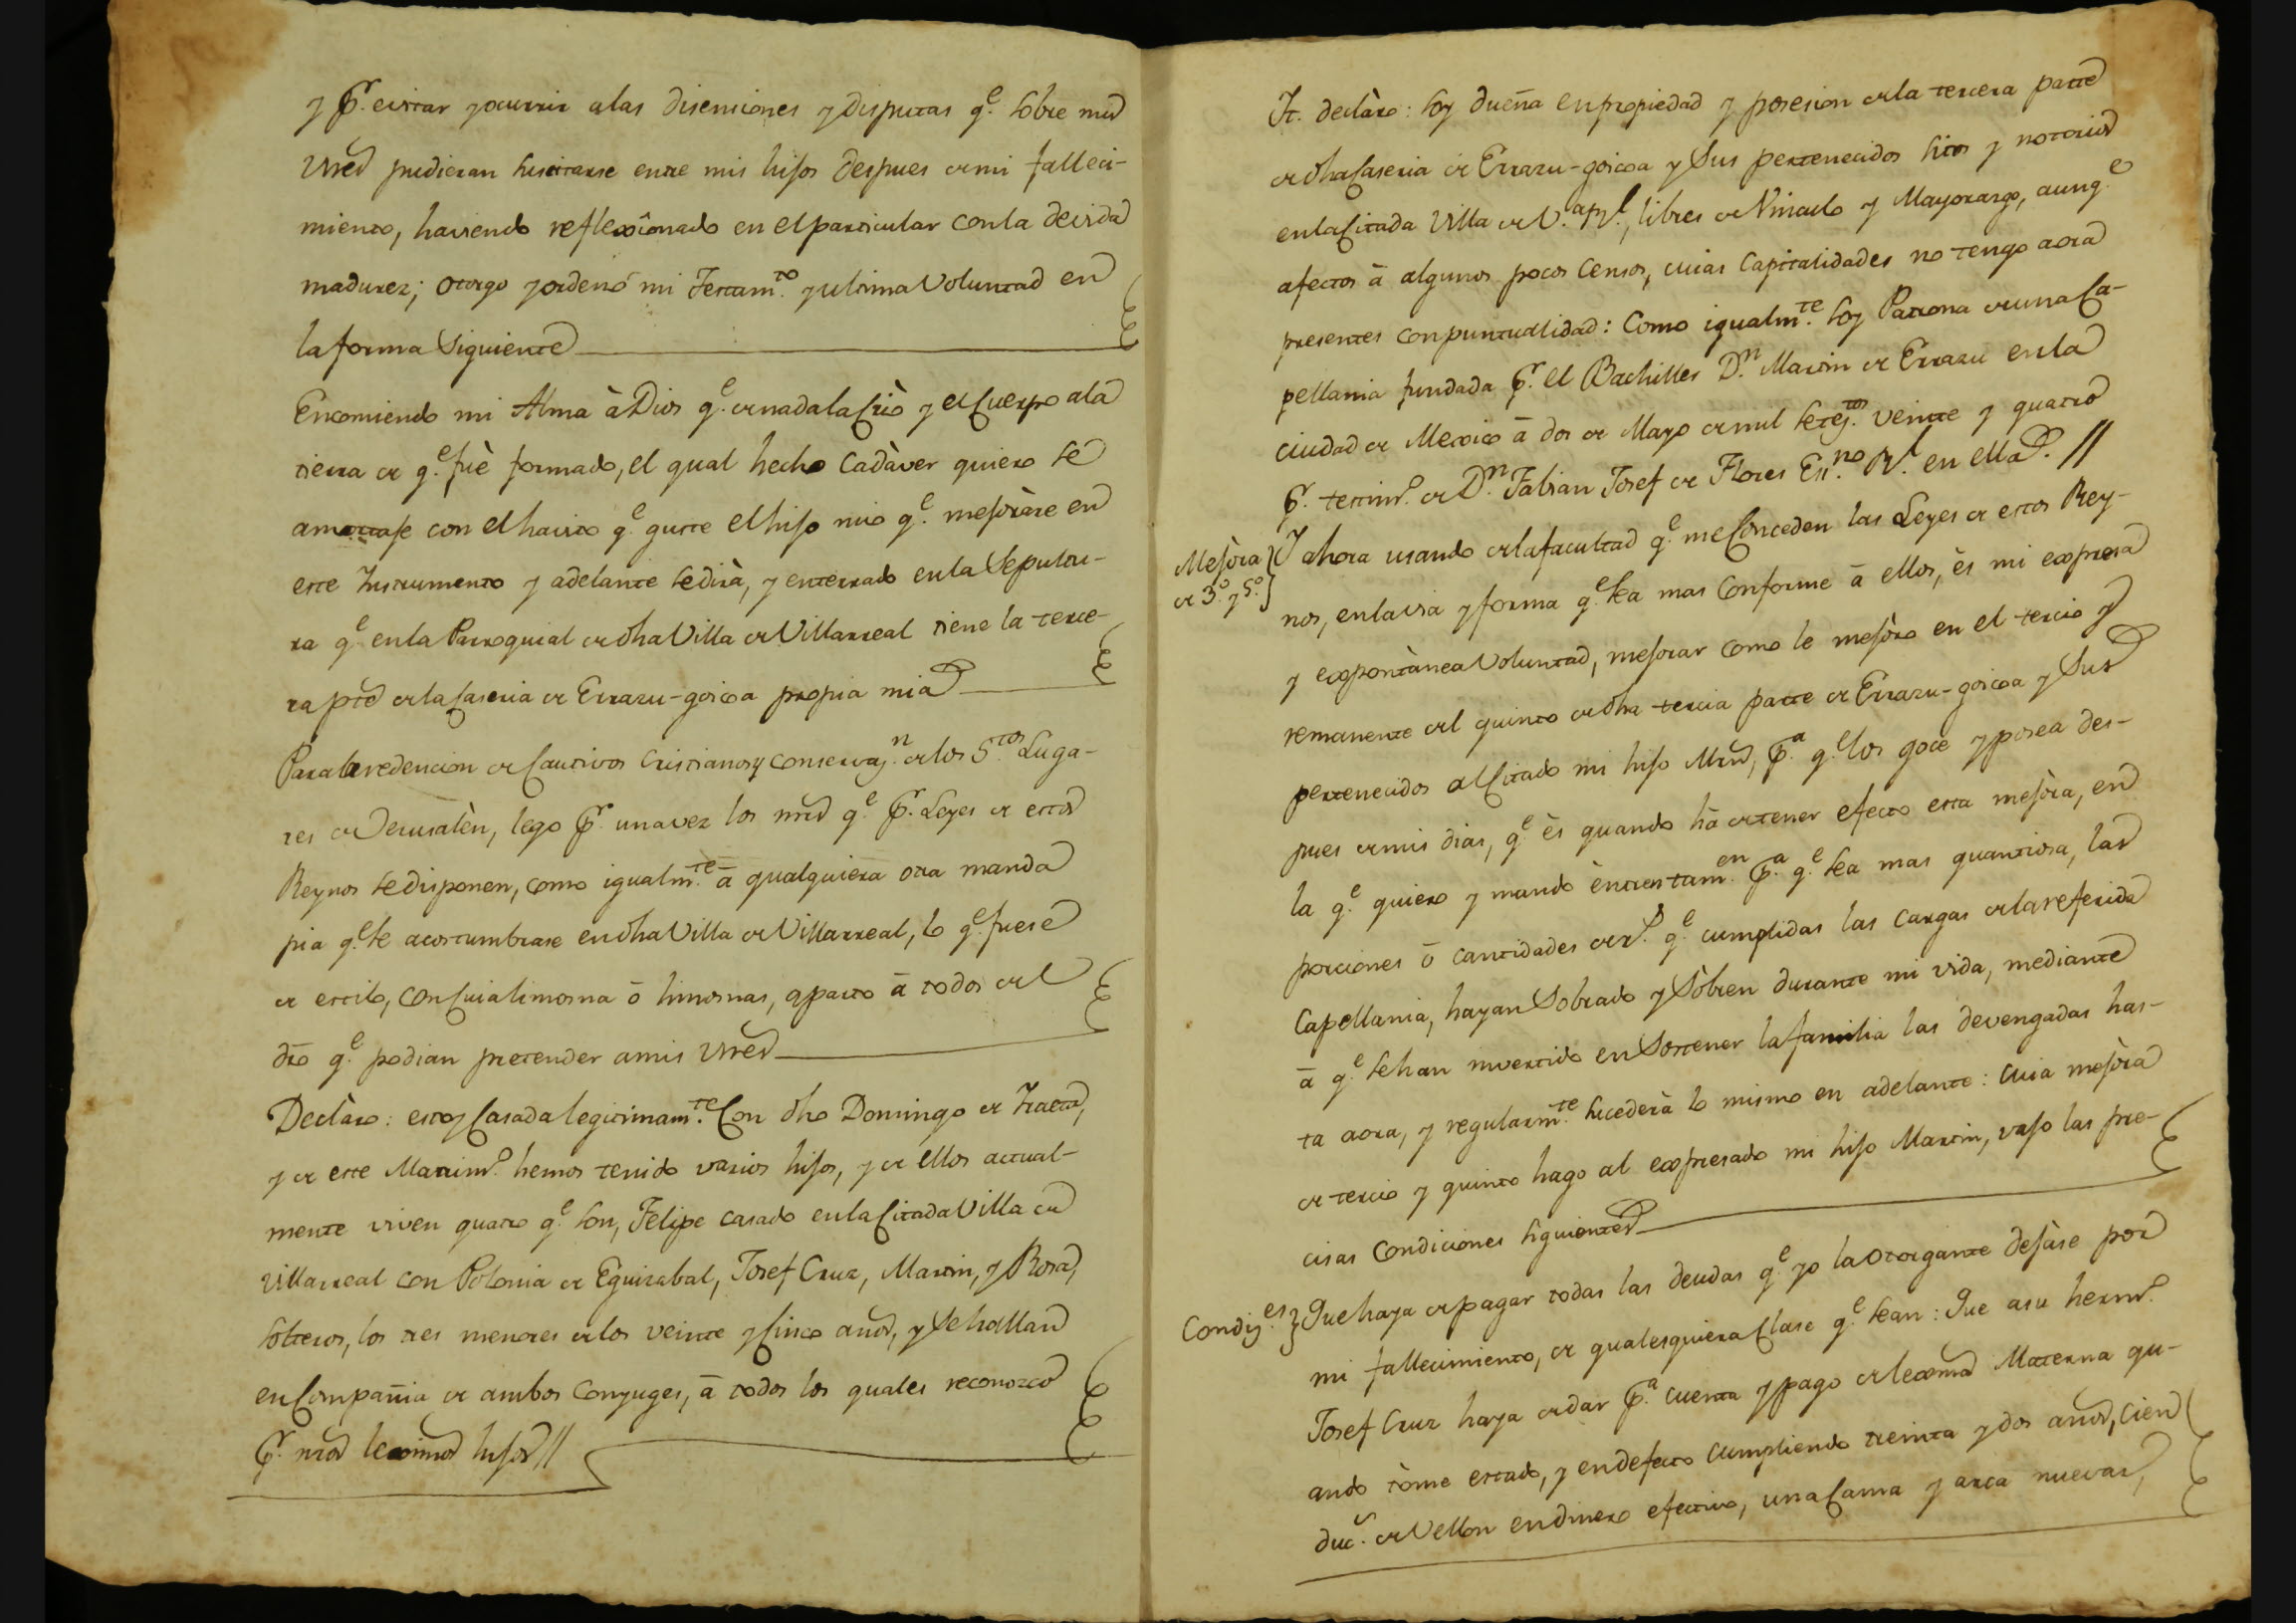 y pr. evitar y ocurrir a las disensiones y disputas qe. sobre mis
vnes pudieran suscitarse entre mis hijos despues de mi falleci-
miento, haviendo reflexîonado en el particular con la devida
madurez; otorgo y ordenó mi Testamto. y ultima Voluntad en
la forma Siguiente
Encomiendo mi Alma à Dios qe. de nada la Criò y el Cuerpo a la
tierra de qe. fuè formado, el qual hecho Cadàver quiero se
amortaje con el havito qe. guste el hijo mio qe. mejoràre en
este Instrumento y adelante se dirà, y enterrado en la Sepultu-
ra qe en la Parroquial de dha Villa de Villarreal tiene la terce-
ra pte de la Caseria de Errazu-goicoa propia mia
Para la redencion de Cautivos Cristianos y conservazn. de los Stos. Luga-
res de Jerusalèn, lego pr. una vez los mrs qe. pr. Leyes de estos
Reynos se disponen, como igualmte. à qualquiera otra manda
pia qe. se acostumbrase en dha Villa de Villarreal, lo qe. fuese
de estilo, con cuia limosna ò limosnas, aparto à todos del
dro qe. podian pretender a mis vnes
Declàro: estoy Casada legitimamte. Con dho Domingo de Iraeta,
y de este Matrimo. hemos tenido varios hijos, y de ellos actual-
mente viven quatro qe. son, Felipe casado en la Citada Villa de
Villarreal con Polonia de Eguizabal, Josef Cruz, Martin, y Rosa,
solteros, los tres menores de los veinte y Cinco años, y Se hallan
en Compañia de ambos Conyuges, à todos los quales reconozco
pr. ntros lexîmos hijos //
It. declàro: soy dueña en propiedad y posesion de la tercera parte
de dha Caseria de Errazu-goicoa y Sus pertenecidos sitos y notorios
en la Citada Villa de V.a Rl., libres de Vinculo y Mayorazgo, aunqe
afectos à algunos pocos Censos, cuias Capitalidades no tengo aora
presentes con puntualidad: Como igualmte. soy Patrona de una Ca-
pellania fundada pr. el Bachiller Dn. Martin de Errazu en la
Ciudad de Mexico à dos de Mayo de mil seteztos. veinte y quatro
pr. testimo. de Dn. Fabian Josef de Flores Esno. Rl. en ella. //
Mejòra
de 3o. y 5o.
Y ahora usando de la facultad qe. me Conceden las Leyes de estos Rey-
nos, en la via y forma qe. sea mas Conforme à ellos, ès mi expresa
y expontànea Voluntad, mejorar como le mejòro en el tercio y
remanente del quinto de dha tercia parte de Errazu-goicoa y Sus
pertenecidos al Citado mi hijo Mrn, pa. qe. los goce y posea des-
pues de mis dias, qe. ès quando hà de tener efecto esta mejòra, en
la qe. quiero y mando èntren tamen. pa. qe. sea mas quantiosa, las
porciones ò cantidades de rs. qe. cumplidas las Cargas de la referida
Capellania, hayan Sobrado y Sòbren durante mi vida, mediante
à qe. se han invertido en Sostener la familia las devengadas has-
ta aora, y regularmte. sucederà lo mismo en adelante: cuia mejòra
de tercio y quinto hago al expresado mi hijo Martin, vajo las pre-
cisas Condiciones siguientes
Condizes.
Que haya de pagar todas las deudas qe. yo la otorgante dejàse por
mi fallecimiento, de qualesquiera Clase qe. sean: Que a su hermo.
Josef Cruz haya de dar pa. cuenta y pago de lexma Materna qu-
ando tòme estado, y en defecto cumpliendo treinta y dos años, cien
ducs. de Vellon en dinero efectivo, una Cama y arca nuevas,